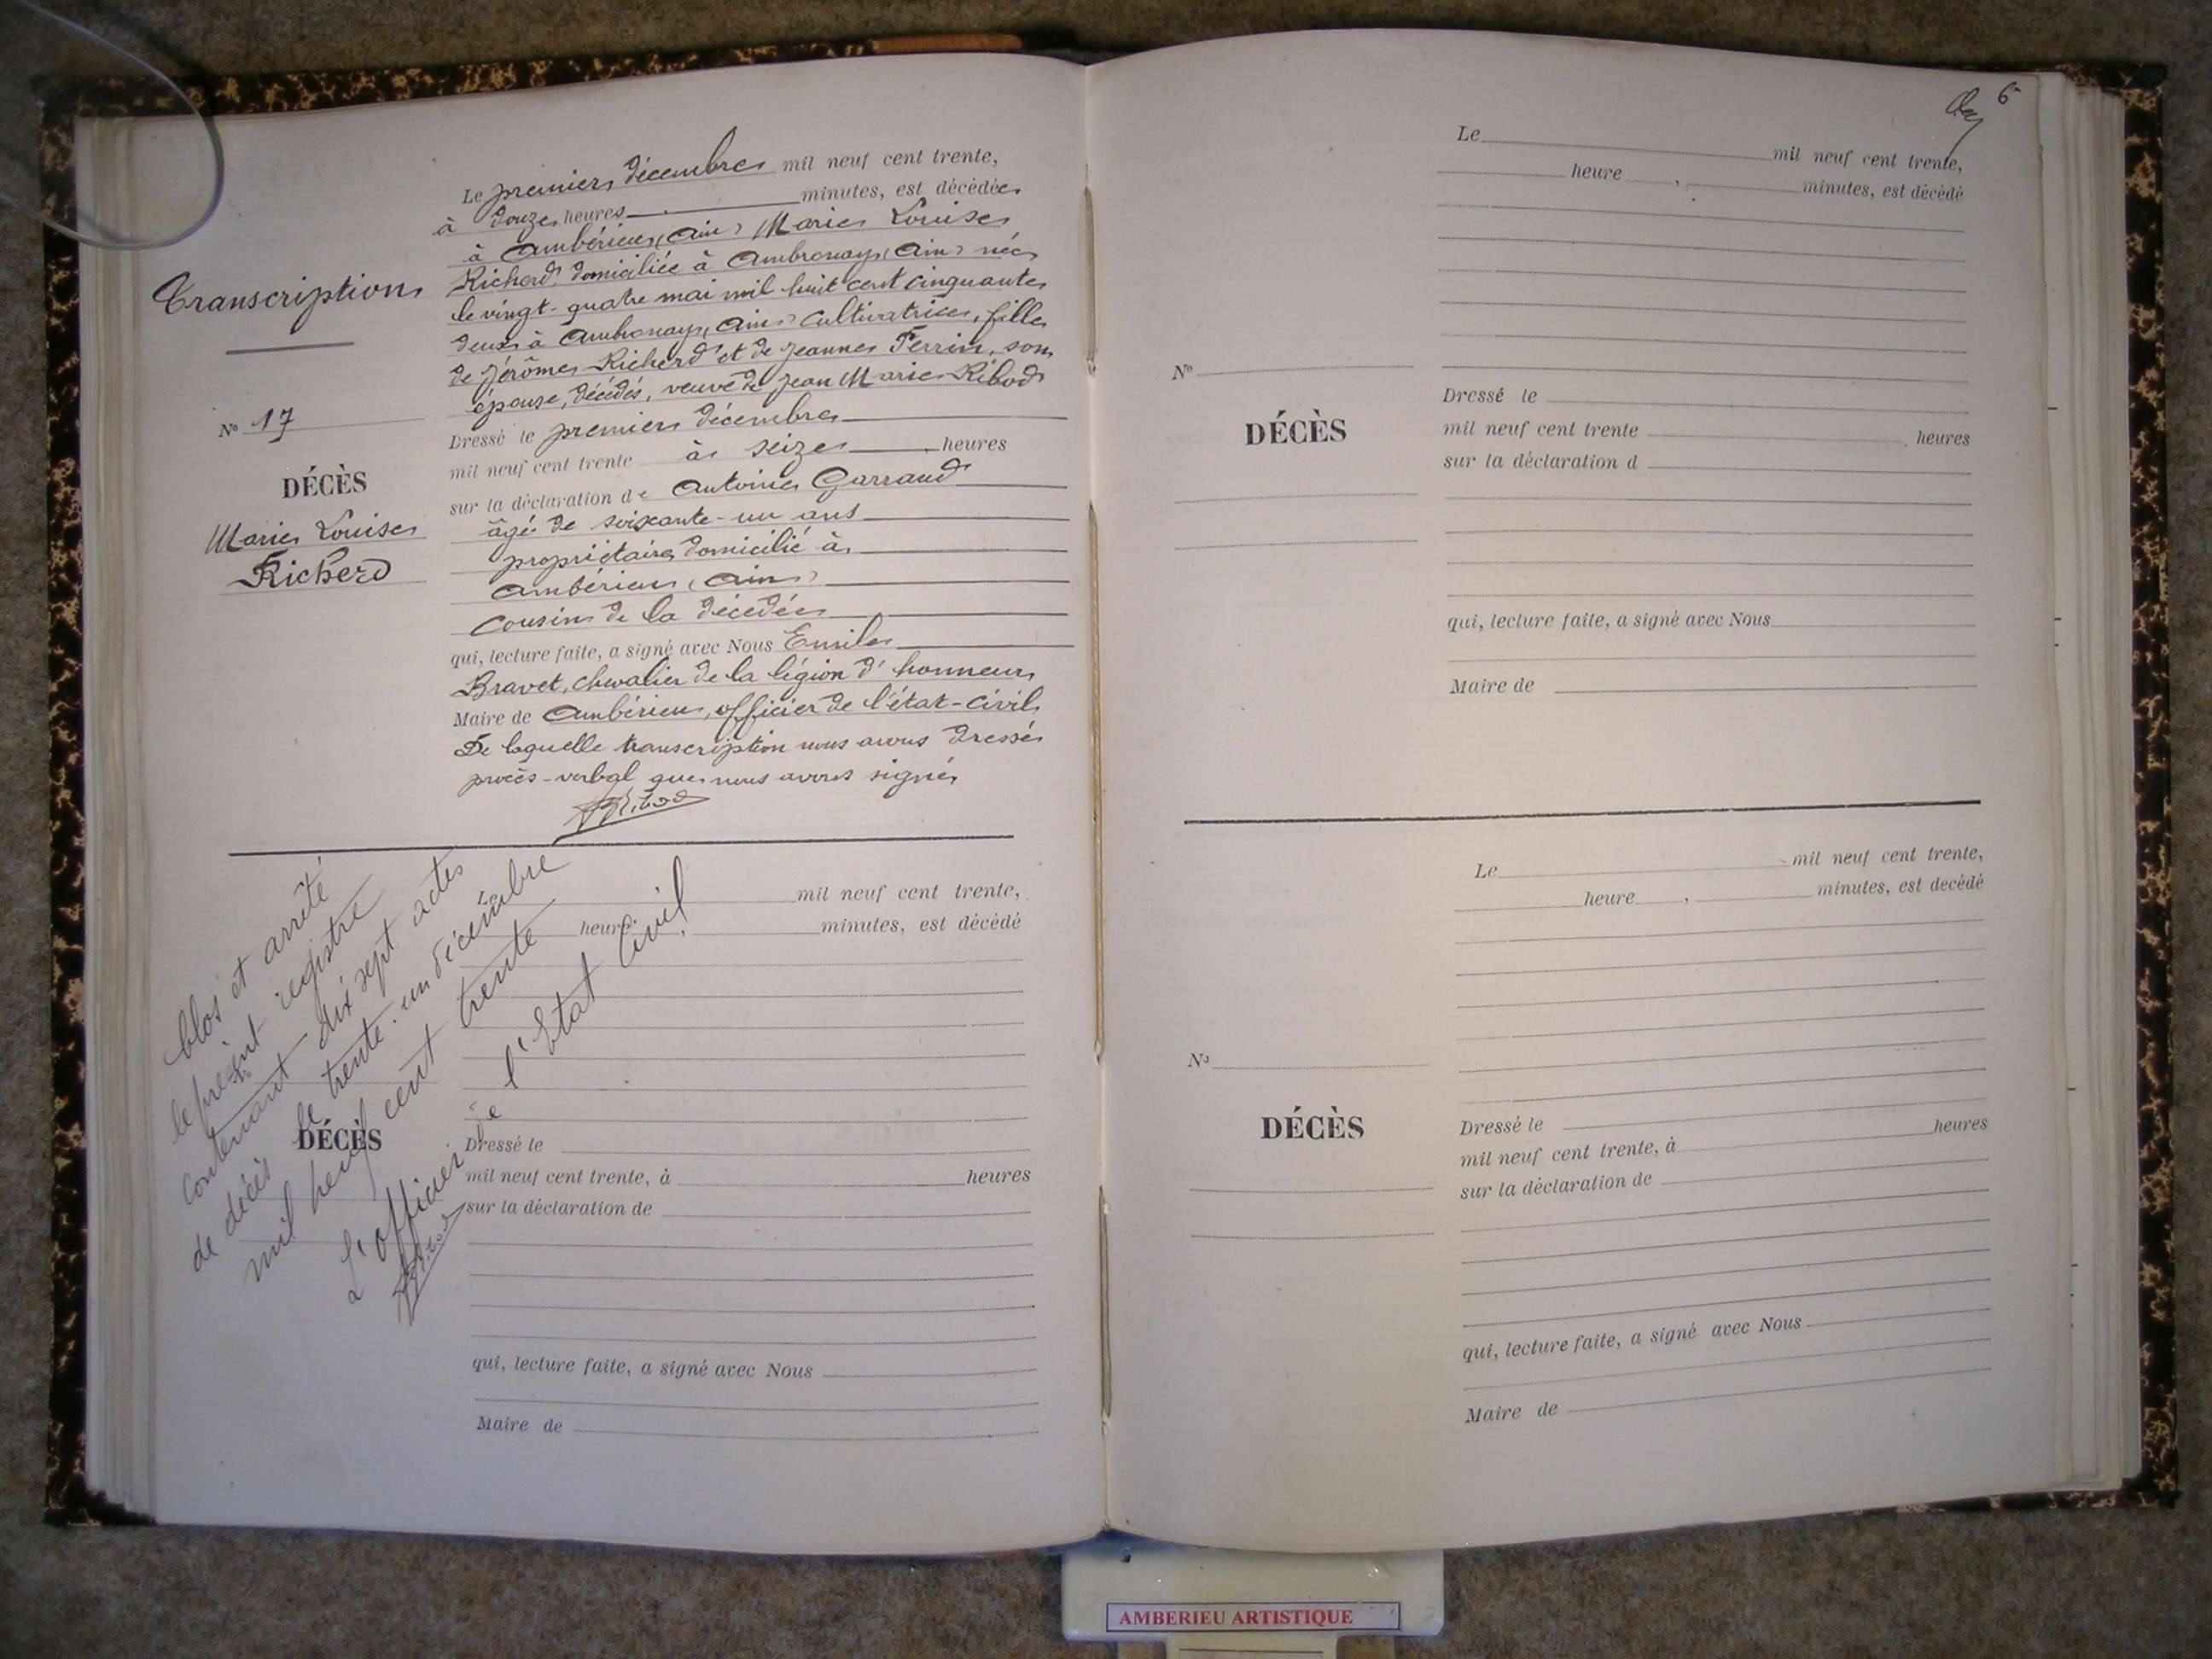 Transcription
N° 17
DÉCÈS
Marie Louise
Richerd
Le premier décembre mil neuf cent trente,
à douze heures minutes, est décédée
à Ambérieu (Ain) Marie Louise
Richerd, domiciliée à Ambronay (Ain) née
le vingt-quatre mai mil huit cent cinquante
deux à Ambronay (Ain) cultivatrice, fille
de Jérôme Richerd et de Jeanne Ferrin, son
épouse, décédés, veuve de Jean Marie Ribod
Dressé le premier décembre
mil neuf cent trente à seize heures
sur la déclaration de Antoine Garraud
âgé de soixante-un ans
propriétaire domicilié à
Ambérieu (Ain)
cousin de la décédée
qui, lecture faite, a signé avec Nous Emile
Bravet, chevalier de la légion d'honneur
Maire de Ambérieu, officier de l'état-civil
De laquelle transcription nous avons dressé
procès-verbal que nous avons signé
Ribod
Clos et arrêté
le présent registre
contenant dix sept actes
de décès le trente-un décembre
mil neuf cent trente
L'officier de l'Etat Civil
Ribod
N°
DÉCÈS
Le mil neuf cent trente,
heure minutes, est décédé
Dressé le
mil neuf cent trente, à heures
sur la déclaration de
qui, lecture faite, a signé avec Nous
Maire de
6
N°
DÉCÈS
Le mil neuf cent trente,
heure , minutes, est décédé
Dressé le
mil neuf cent trente heures
sur la déclaration d
qui, lecture faite, a signé avec Nous
Maire de
N°
DÉCÈS
Le mil neuf cent trente,
heure , minutes, est decédé
Dressé le
mil neuf cent trente, à heures
sur la déclaration de
qui, lecture faite, a signé avec Nous
Maire de
AMBERIEU ARTISTIQUE